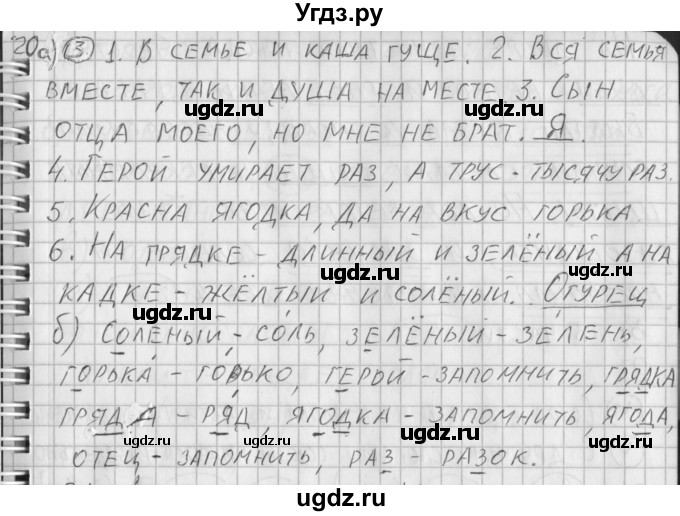 Угдз.ру
20а) 3 1. В СЕМЬЕ И КАША ГУЩЕ. 2. ВСЯ СЕМЬЯ
ugdz.ru
ВМЕСТЕ, ТАК И ДУША НА МЕСТЕ 3. СЫН
ugdz.ru ugdz.ru
ОТЦА МОЕГО, НО МНЕ НЕ БРАТ. Я.
ugdz.ru
4. ГЕРОЙ УМИРАЕТ РАЗ, А ТРУС - ТЫСЯЧУ РАЗ.
ugdz.ru ugdz.ru
5. КРАСНА ЯГОДКА, ДА НА ВКУС ГОРЬКА
ugdz.ru
6. НА ГРЯДКЕ - ДЛИННЫЙ И ЗЕЛЁНЫЙ А НА
ugdz.ru ugdz.ru
КАДКЕ - ЖЁЛТЫЙ И СОЛЁНЫЙ. ОГУРЕЦ
ugdz.ru
б) СОЛЁНЫЙ - СОЛЬ, ЗЕЛЁНЫЙ - ЗЕЛЕНЬ,
ugdz.ru ugdz.ru
ГОРЬКА - ГОРЬКО, ГЕРОЙ - ЗАПОМНИТЬ, ГРЯДКА
ugdz.ru
ГРЯДА - РЯД, ЯГОДКА - ЗАПОМНИТЬ, ЯГОДА,
ugdz.ru ugdz.ru
ОТЕЦ - ЗАПОМНИТЬ, РАЗ - РАЗОК.
ugdz.ru
ugdz.ru